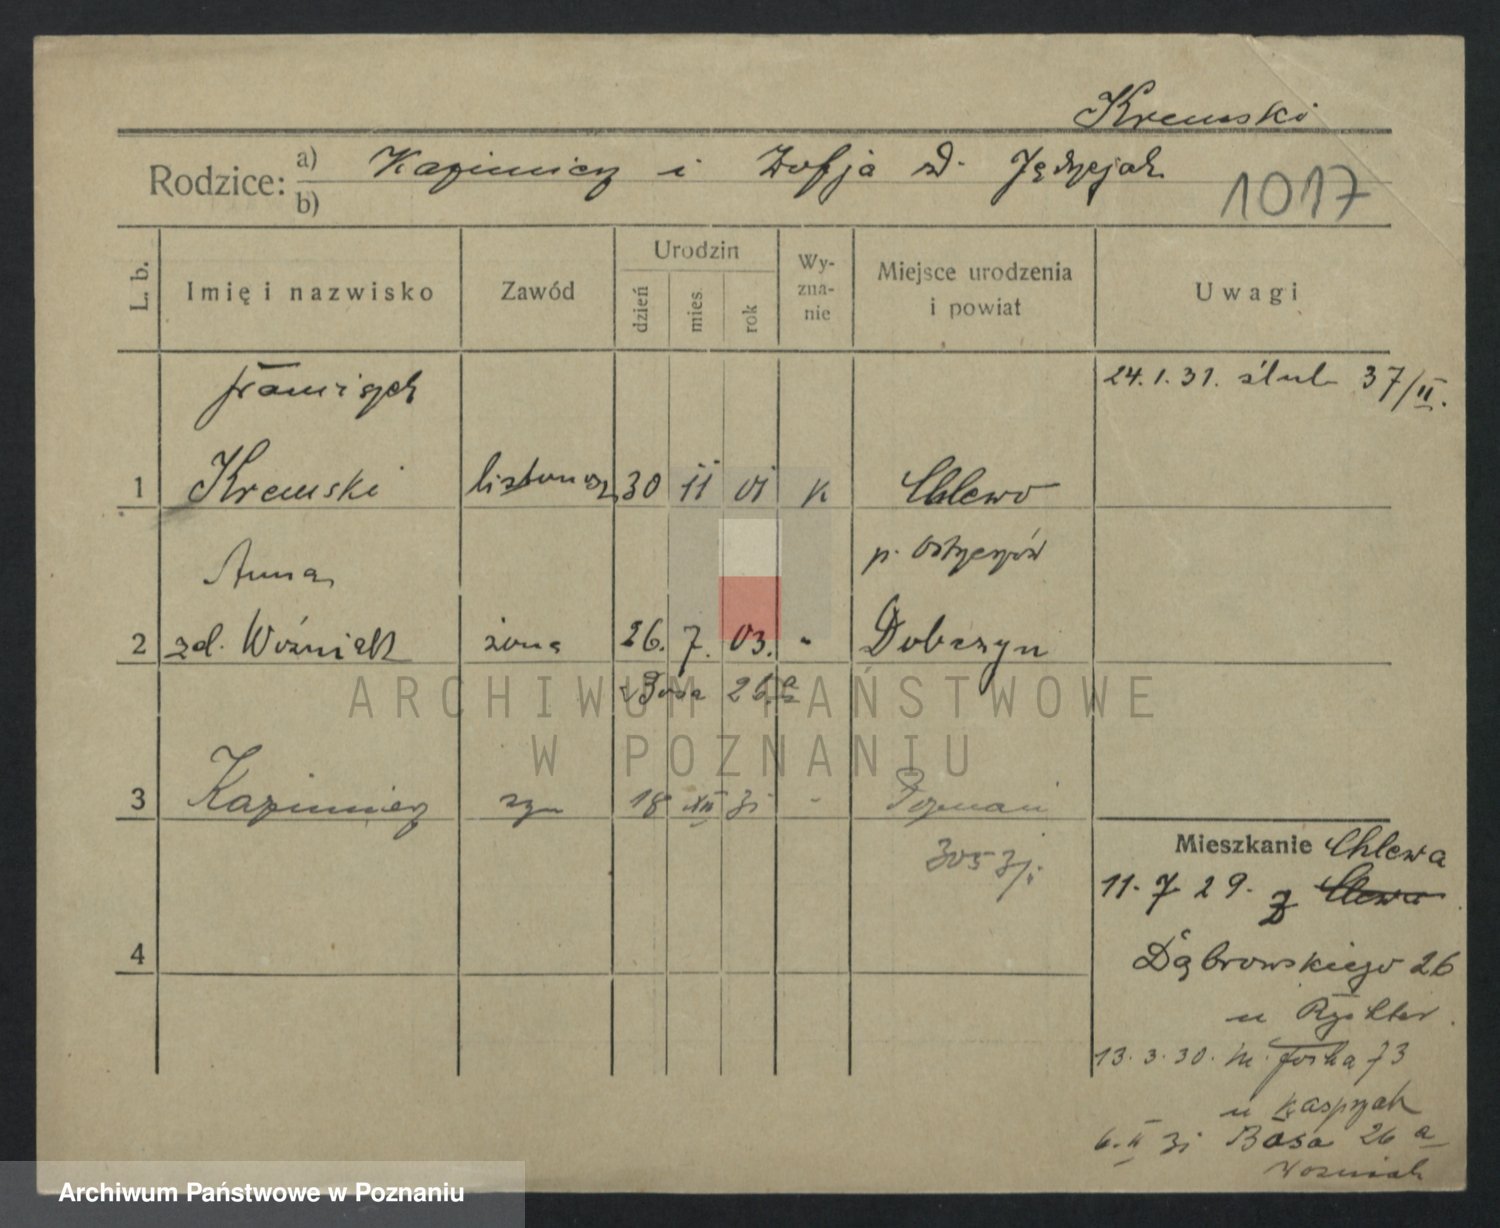 Kremski
Rodzice: a) Kazimierz i Zofja z d. Jędrzejak
b)
1017
L. b.
Imię i nazwisko
Zawód
Urodzin
dzień
mies.
rok
Wy-
zna-
nie
Miejsce urodzenia
i powiat
Uwagi
Franciszek
24. 1. 31. ślub 37/II.
1 Kremski listonosz 30 11 01 k Chlewo
p. Ostrzeszów
Anna
2 zd. Woźniak żona 26. 7. 03. " Dobczyn
Bosa 26 a
ARCHIWUM PAŃSTWOWE
W POZNANIU
3 Kazimierz syn 18 XII 31 - Poznań
305 31
Mieszkanie Chlewa
11. 7 29. z Clewa
4
Dąbrowskiego 26
u Rychter
13. 3. 30. M. Focha 73
u Kasprzak
6. II 31 Bosa 26 a
Woźniak
Archiwum Państwowe w Poznaniu